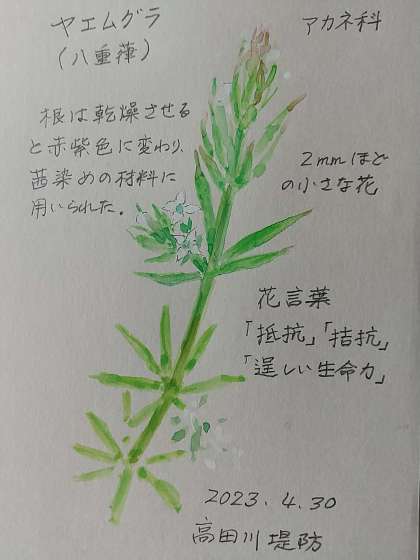 ヤエムグラ
(八重葎)
アカネ科
根は乾燥させる
と赤紫色に変わり、
茜染めの材料に
用いられた。
2mmほど
の小さな花
花言葉
「抵抗」「拮抗」
「逞しい生命力」
2023.4.30
高田川堤防